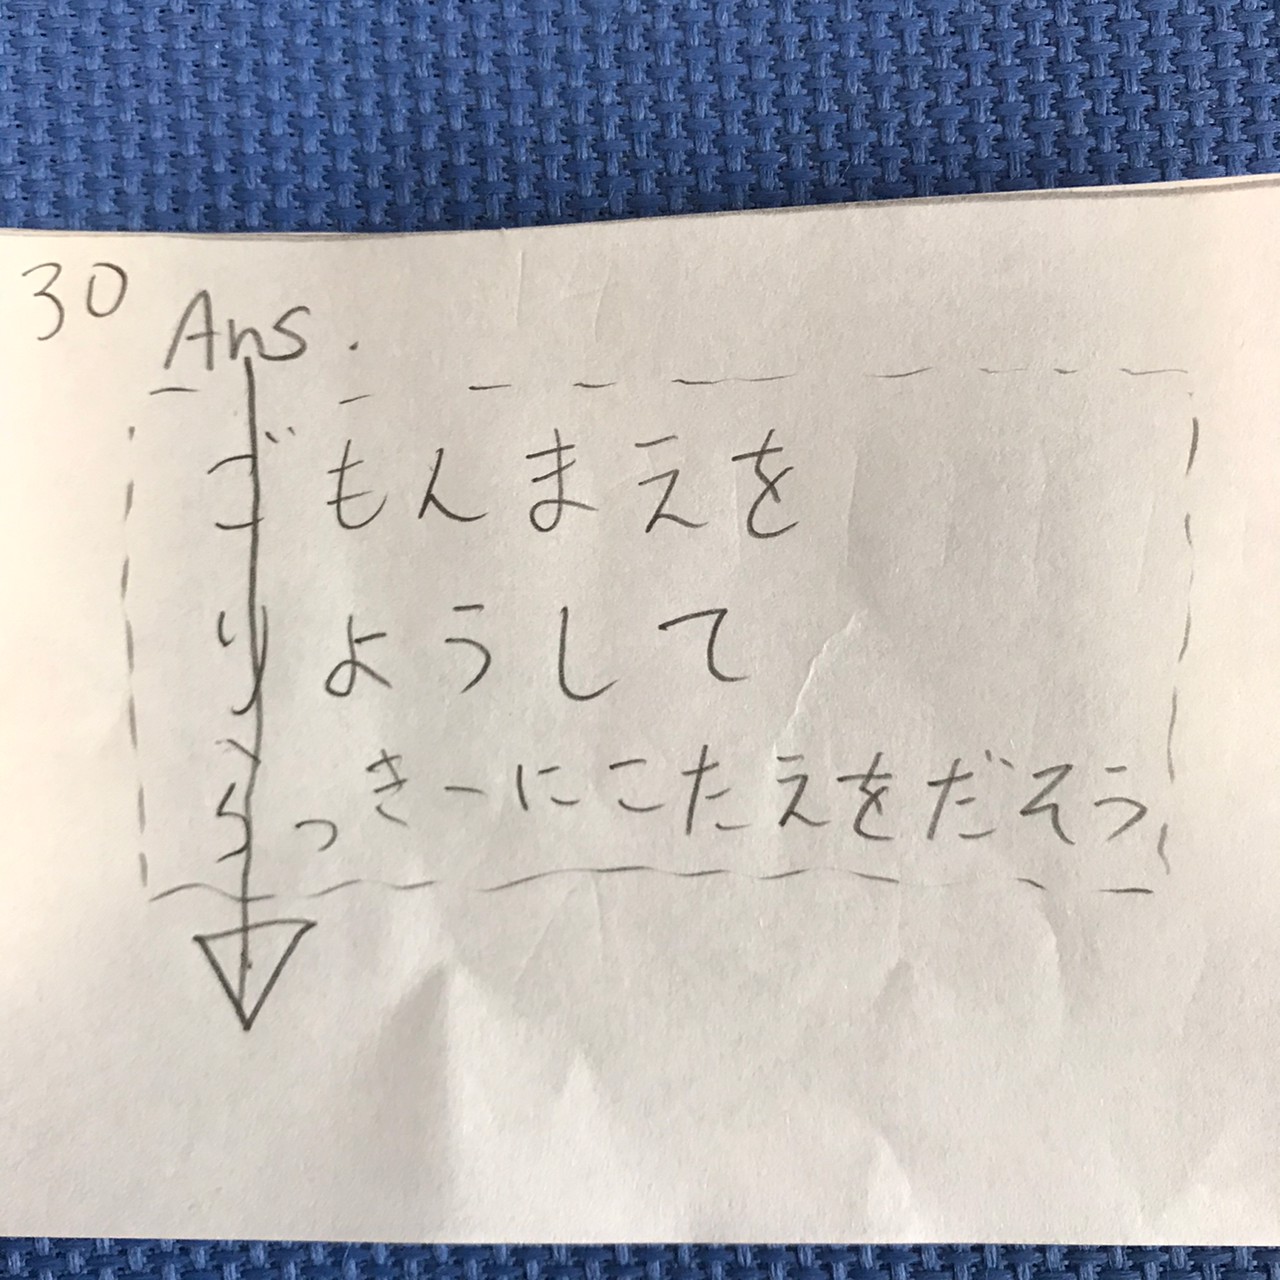 30
Ans.
ごもんまえを
りようして
らっきーにこたえをだそう